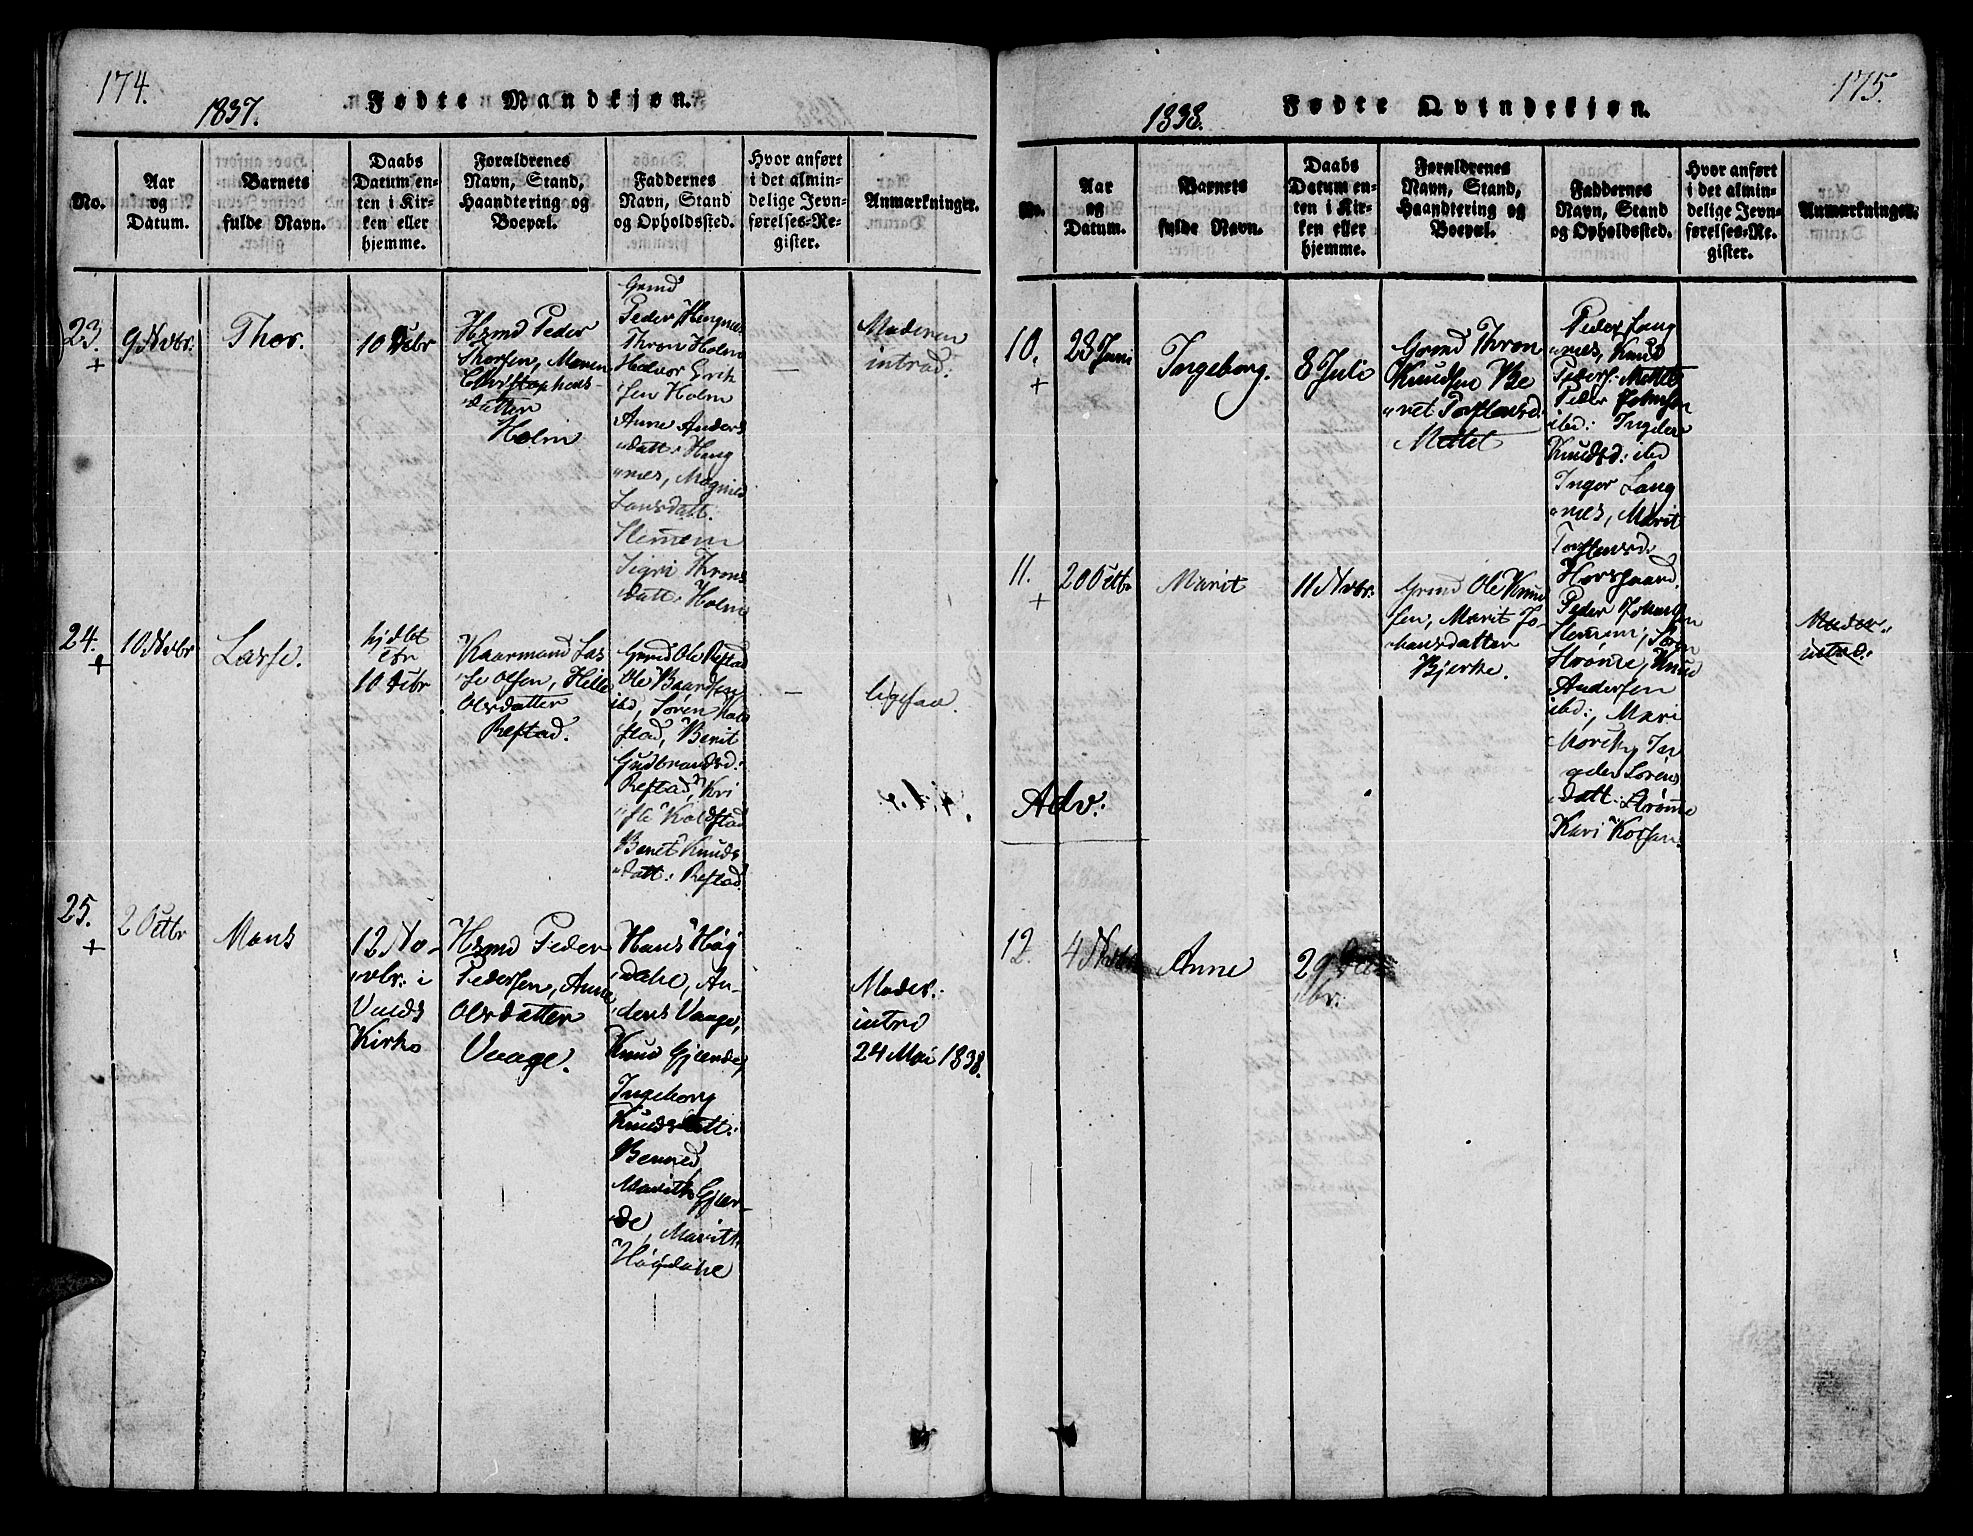 174.
1837.
Fødte Mandkjøn.
No.
Aar
og
Datum.
Barnets
fulde Navn.
Daabs
Datum en-
ten i Kir-
ken eller
hjemme.
Forældrenes
Navn, Stand,
Haandtering og
Boepæl.
Faddernes
Navn, Stand
og Opholdssted.
Hvor anført
i det almin-
delige Jevn-
førelses-Re-
gister.
Anmærkninger.
23.
+
9 Novbr.
Thor.
10 Debr
Hsmd Peder
Thorsen, Maren
Christophers
datter
Holm
Grmd
Peder Hengnes
Thron Holm
Halvor Erik
sen Holm
Anne Anders
datt: Heng
nes, Magnild
Larsdatt.
Slemem
Sigri Throns
datt: Holm
—
Moderen
introd:
24.
+
10 Novbr
Lasse.
hjdbt
10 Debr
Kaarmand Las
se Olsen,
Olsdatter
Refstad.
Grmd Ole Refstad
Ole Baardsen
ibd, Søren Kold
stad, Berit
Gudbrandsd:
Refstad, Kri
Koldstad
Beret Knuds
datt: Refstad.
—
ligesaa.
25.
+
2 Octbr
Mons
12 No-
vbr: i
Kirke
Hsmd Peder
Pedersen, Anne
Olsdatter
Vaage.
Hans Høg
dahl, An-
ders Vaage,
Knud Gjerde,
Ingeborg
Knudsdatt:
Marith Gjer-
de, Marith
Høgdahl
Moder:
intrd
24 Mai 1838.
175.
1838.
Fødte Qvindekjøn.
No.
Aar
og
Datum.
Barnets
fulde Navn.
Daabs
Datum en-
ten i Kir-
ken eller
hjemme.
Forældrenes
Navn, Stand,
Haandtering og
Boepæl.
Faddernes
Navn, Stand
og Opholdssted.
Hvor anført
i det almin-
delige Jevn-
førelses-Re-
gister.
Anmærkninger.
10.
+
23 Juni
Ingeborg.
8 Juli
Grmd Thron
Knudsen Be
ret Torstensd:
Mettet
Peder Lang
nes, Knud
Peders: Mettet
Peder Johnsen
ibd: Ingeler
Knudsd: ibd
Inger Lang
nes, Marit
Torstensd:
Horsgaard.
11.
+
20 Octbr
Marit
11 Novbr.
Grmd Ole Knud
sen, Marit Jo-
hansdatter
Bjerke.
Peder Johansen
Slemem, Søren
Strømme, Knud
Andersen
ibd:, Mari
Horsth, In
geler Sørens
datt: Strømme
Kari
Moder:
intrd:
Adv:
12.
4 Novbr
Anne
29 De
br: